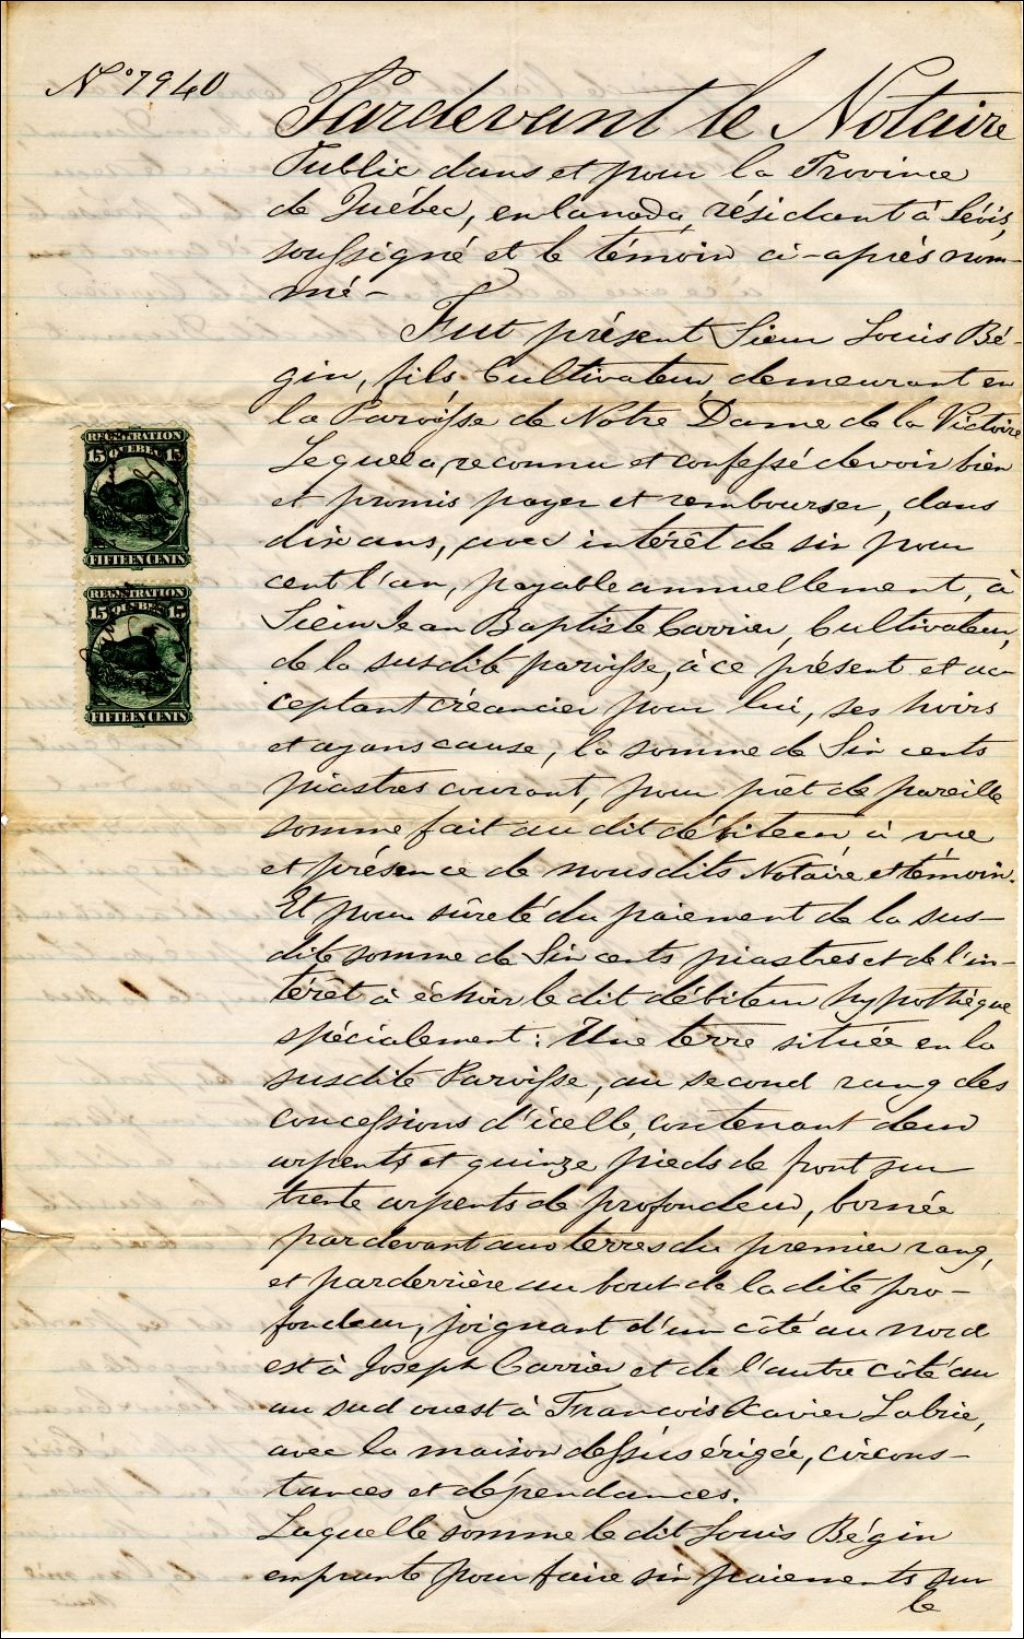 N° 7940
Pardevant le Notaire
Public dans et pour la Province
de Québec, en Canada, résidant à Lévis,
soussigné et le témoin ci-après nom-
mé -
Fut présent Sieur Louis Bé-
gin, fils, Cultivateur, demeurant en
la Paroisse de Notre Dame de la Victoire
Lequel a, reconnu et confessé devoir bien
et promis payer et rembourser, dans
dix ans, avec intérêt de six pour
cent l'an, payable annuellement, à
Sieur Jean Baptiste Carrier, Cultivateur,
de la susdite paroisse, à ce présent et ac-
ceptant créancier pour lui, ses hoirs
et ayans cause, la somme de Six cents
piastres courant, pour prêt de pareille
somme fait au dit débiteur à vue
et présence de nousdits Notaire et témoin.
Et pour sûreté du paiement de la sus-
dite somme de Six cents piastres et de l'in-
térêt à échoir le dit débiteur hypothèque
spécialement: Une terre située en la
susdite Paroisse, au second rang des
concessions d'icelle, contenant deux
arpents et quinze pieds de front sur
trente arpents de profondeur, bornée
pardevant aux terres du premier rang,
et parderrière au bout de la dite pro-
fondeur, joignant d'un côté au nord
est à Joseph Carrier et de l'autre côté au
au sud ouest à François Xavier Labrie,
avec la maison dessus érigée, circons-
tances et dépendances.
Laquelle somme le dit Louis Bégin
emprunte pour faire six paiements sur
le
REGISTRATION
15 QUEBEC 15
FIFTEEN CENTS
REGISTRATION
15 QUEBEC 15
FIFTEEN CENTS